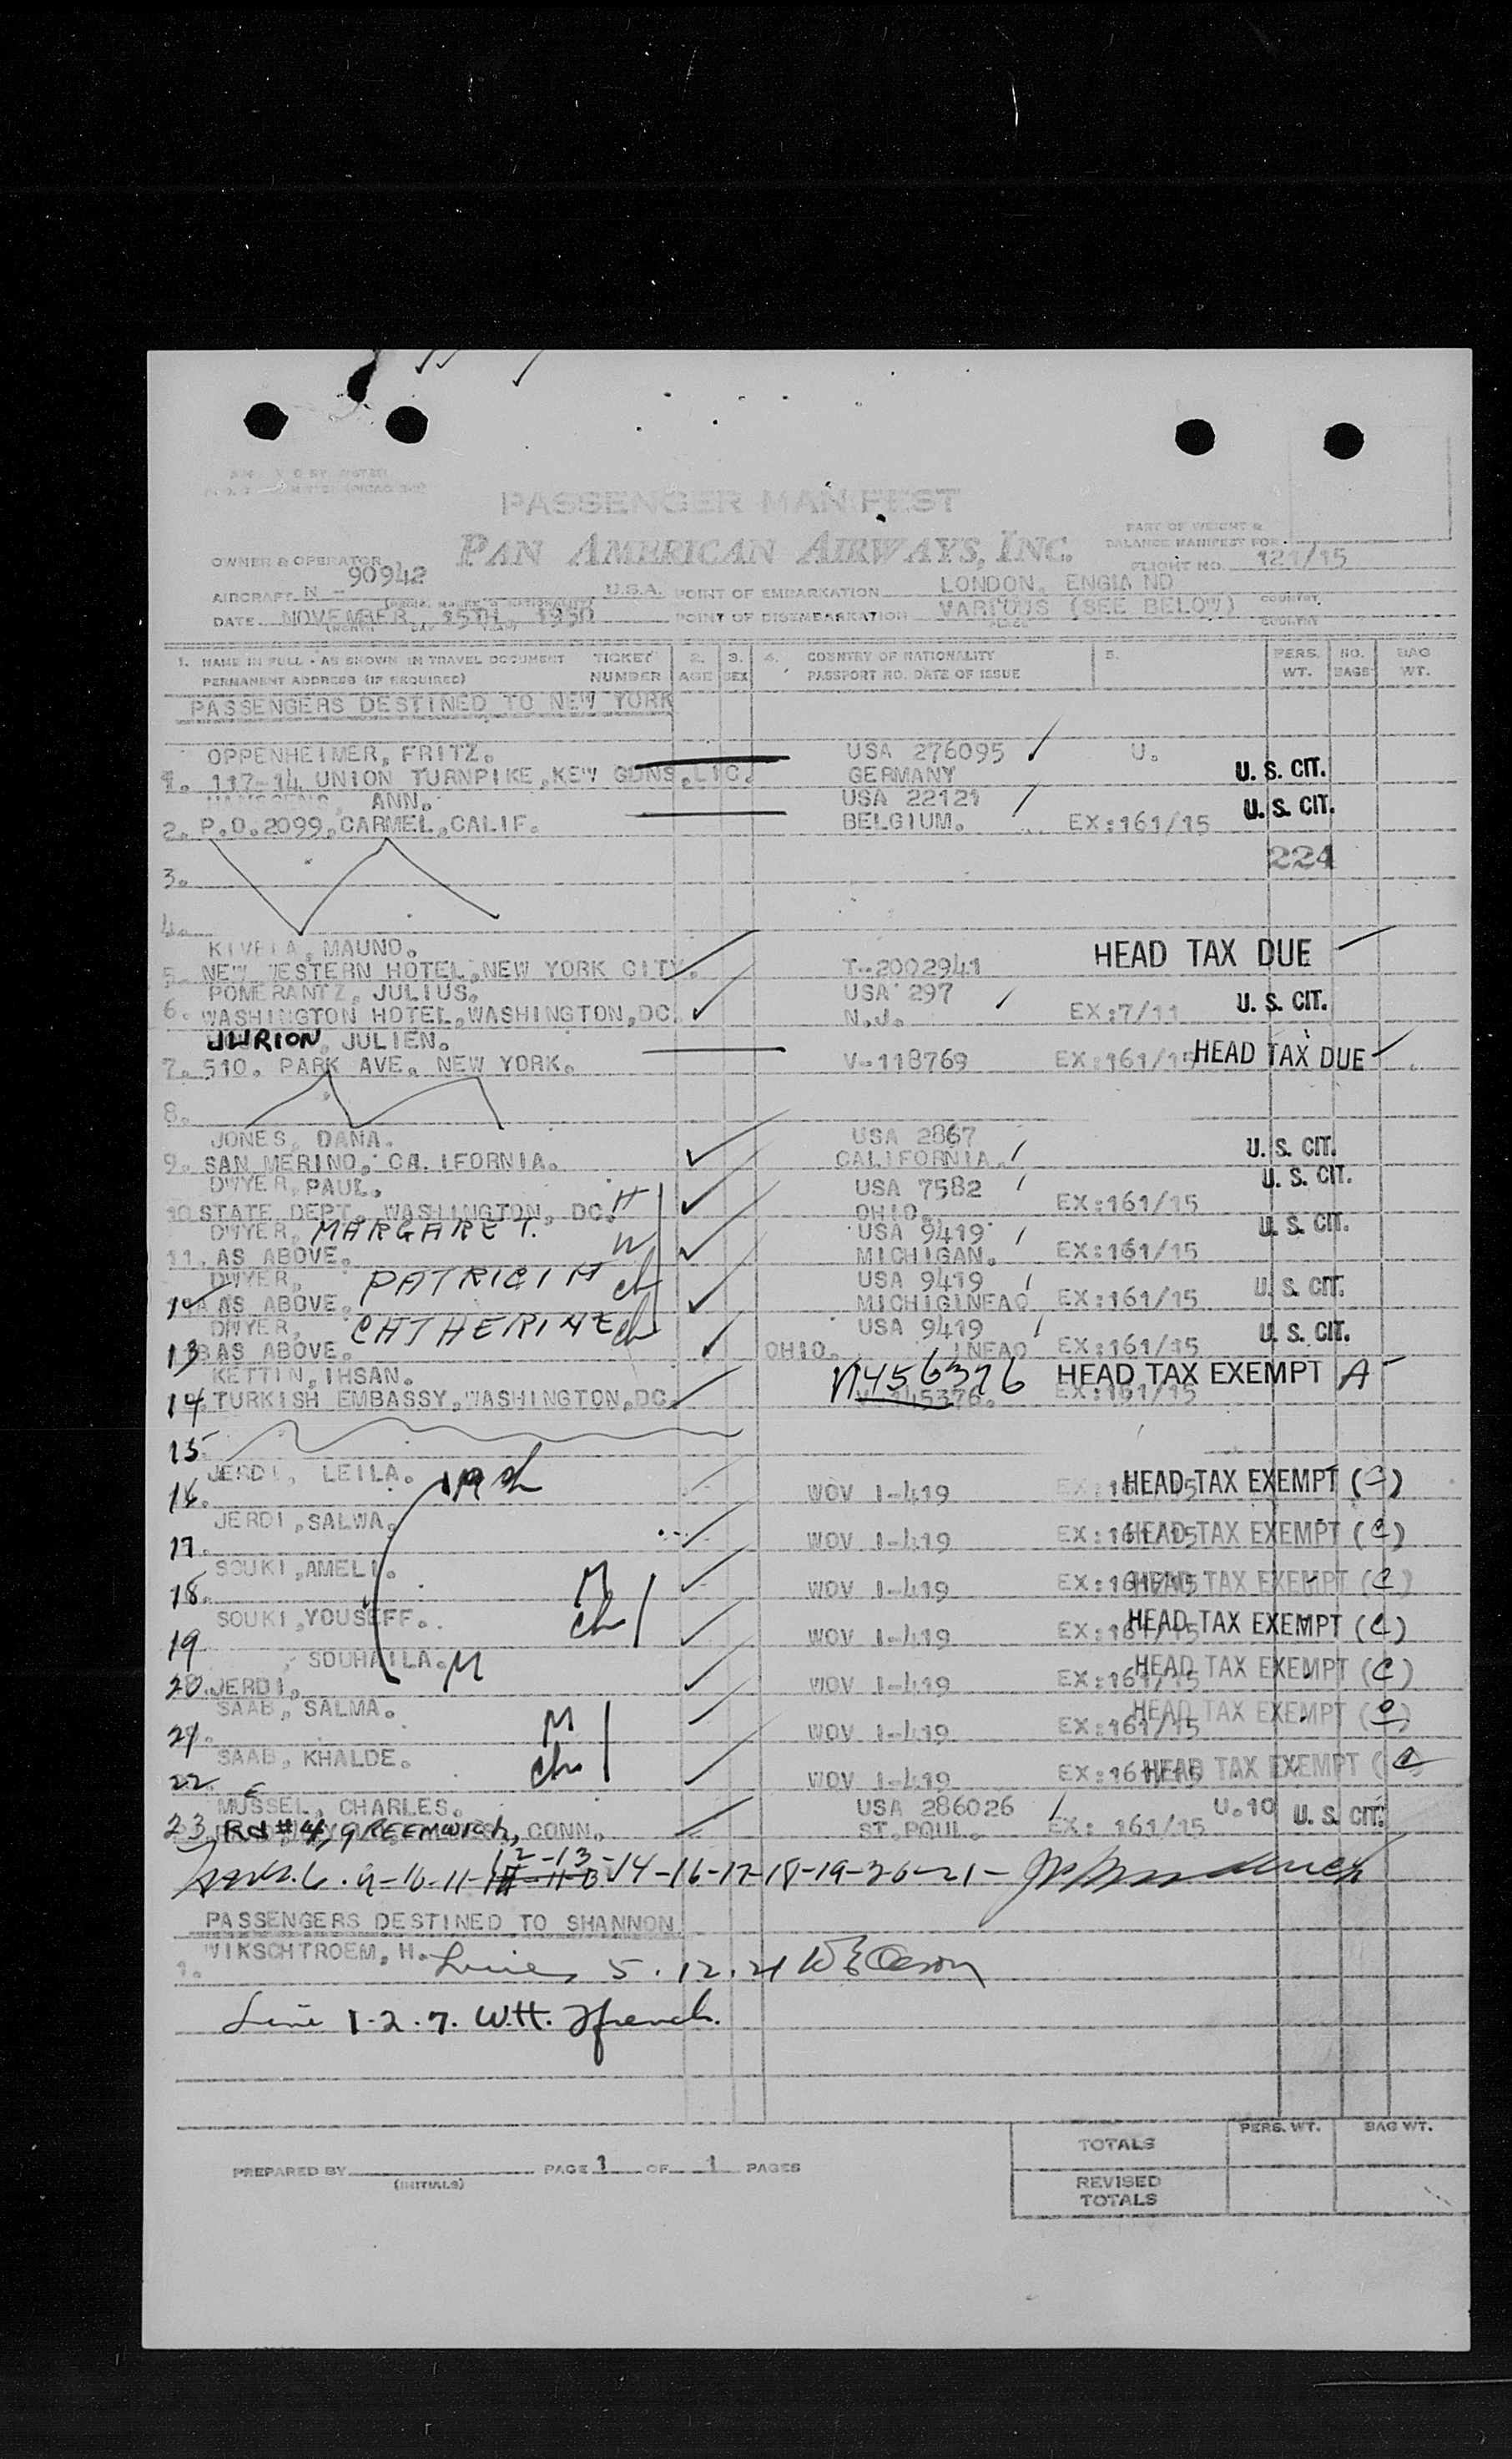 PASSENGER MANIFEST
PAN AMERICAN AIRWAYS, INC.
PART OF WEIGHT &
BALANCE MANIFEST FOR
FLIGHT NO. 121/15
OWNER & OPERATOR
AIRCRAFT N - 90942 U.S.A. POINT OF EMBARKATION LONDON, ENGLAND COUNTRY
DATE NOVEMBER 1950 POINT OF DISEMBARKATION VARIOUS (SEE BELOW) COUNTRY
(MONTH DAY YEAR) PLACE
1. NAME IN FULL - AS SHOWN IN TRAVEL DOCUMENT TICKET 2. 3. 4. COUNTRY OF NATIONALITY 5. PERS. NO. BAG
PERMANENT ADDRESS (IF REQUIRED) NUMBER AGE SEX PASSPORT NO. DATE OF ISSUE WT. BAGS WT.
PASSENGERS DESTINED TO NEW YORK
OPPENHEIMER, FRITZ. USA 276095 U.
1. 117-14 UNION TURNPIKE, KEW GDNS, GERMANY U. S. CIT.
ANN. USA 22121
2. P.O.2099, CARMEL, CALIF. BELGIUM. EX:161/15 U. S. CIT.
224
3.
4.
KIVELA, MAUNO. HEAD TAX DUE
5. NEW WESTERN HOTEL, NEW YORK CITY. T-2002941
POMERANTZ, JULIUS. USA 297
6. WASHINGTON HOTEL, WASHINGTON, DC. N.J. EX:7/11 U. S. CIT.
JURION, JULIEN.
7. 510. PARK AVE. NEW YORK. V-118769 EX:161/15 HEAD TAX DUE
8.
JONES, DANA. USA 2867
9. SAN MERINO, CALIFORNIA. CALIFORNIA. U. S. CIT.
DWYER, PAUL. USA 7582 U. S. CIT.
10 STATE DEPT. WASHINGTON, DC. H OHIO. EX:161/15
DWYER, MARGARET. USA 9419 U. S. CIT.
11. AS ABOVE. W MICHIGAN. EX:161/15
DWYER, PATRICIA ch USA 9419 U. S. CIT.
AS ABOVE. MICHIGINEAO EX:161/15
DWYER, CATHERINE ch USA 9419 U. S. CIT.
13 AS ABOVE. OHIO. INEAO EX:161/15
KETTIN, IHSAN. V456376 HEAD TAX EXEMPT A
14. TURKISH EMBASSY, WASHINGTON, DC. V-145376. EX:161/15
15
JERDI, LEILA.
16. WOV 1-419 EX:161/15 HEAD TAX EXEMPT (C)
JERDI, SALWA.
17. WOV 1-419 EX:161/15 HEAD TAX EXEMPT (C)
SOUKI, AMELI. M
18. WOV 1-419 EX:161/15 HEAD TAX EXEMPT (C)
SOUKI, YOUSEFF. ch
19 WOV 1-419 EX:161/15 HEAD TAX EXEMPT (C)
SOUHAILA. M
20. JERDI, WOV 1-419 EX:161/15 HEAD TAX EXEMPT (C)
SAAB, SALMA. M
21. WOV 1-419 EX:161/15 HEAD TAX EXEMPT (C)
SAAB, KHALDE. ch
22. WOV 1-419 EX:161/15 HEAD TAX EXEMPT (C)
MUSSEL, CHARLES. USA 286026 U.10
23. Rd #4, GREENWICH, CONN. ST. POUL. EX: 161/15 U. S. CIT.
6-9-10-11-12-13-14-16-17-18-19-20-21-
PASSENGERS DESTINED TO SHANNON
WIKSCHTROEM, H.
1. Lines 5. 12. 21
Line 1-2.7. W.H. French.
TOTALS PERS. WT. BAG WT.
PREPARED BY (INITIALS) PAGE 1 OF 1 PAGES
REVISED
TOTALS